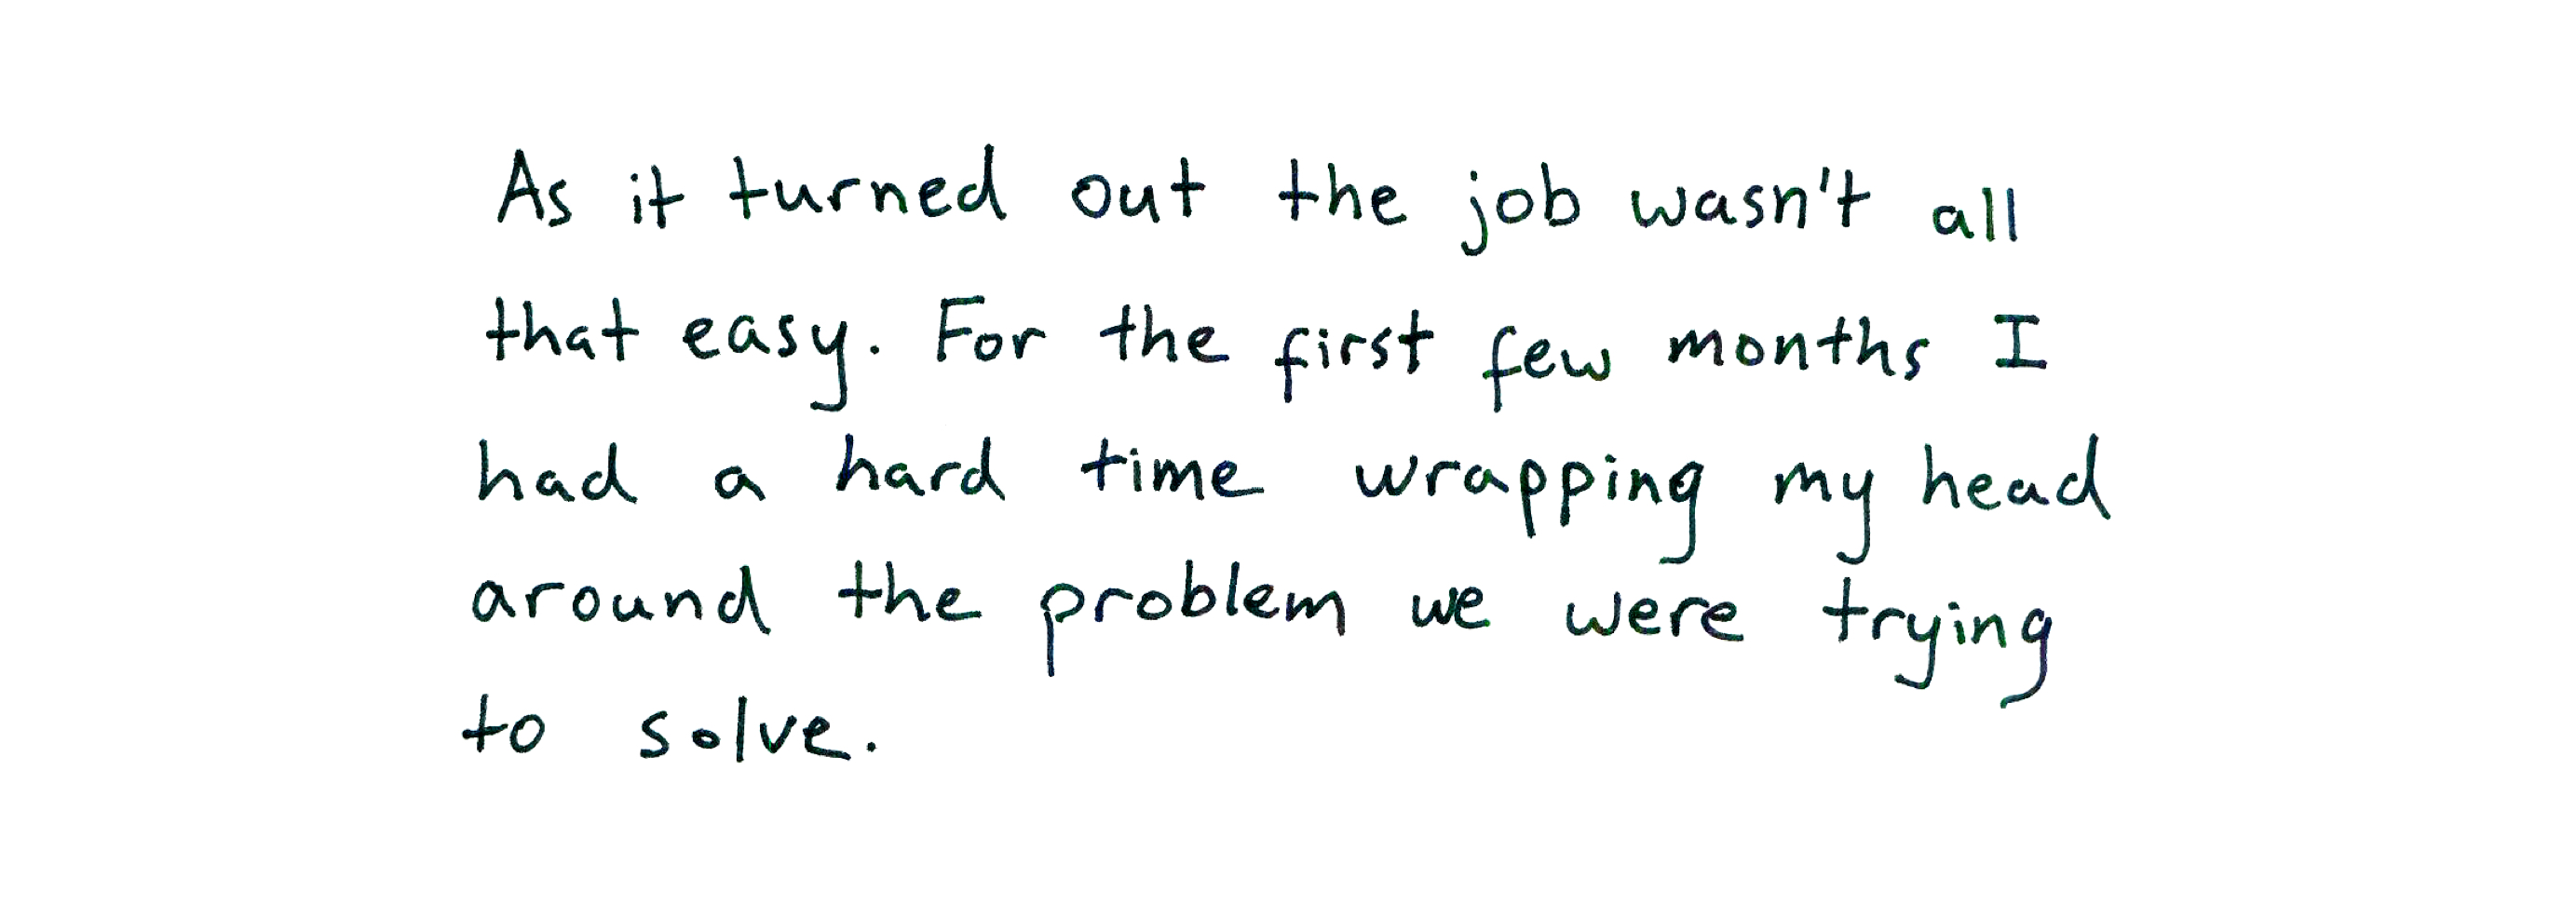 As it turned out the job wasn't all
that easy. For the first few months I
had a hard time wrapping my head
around the problem we were trying
to solve.